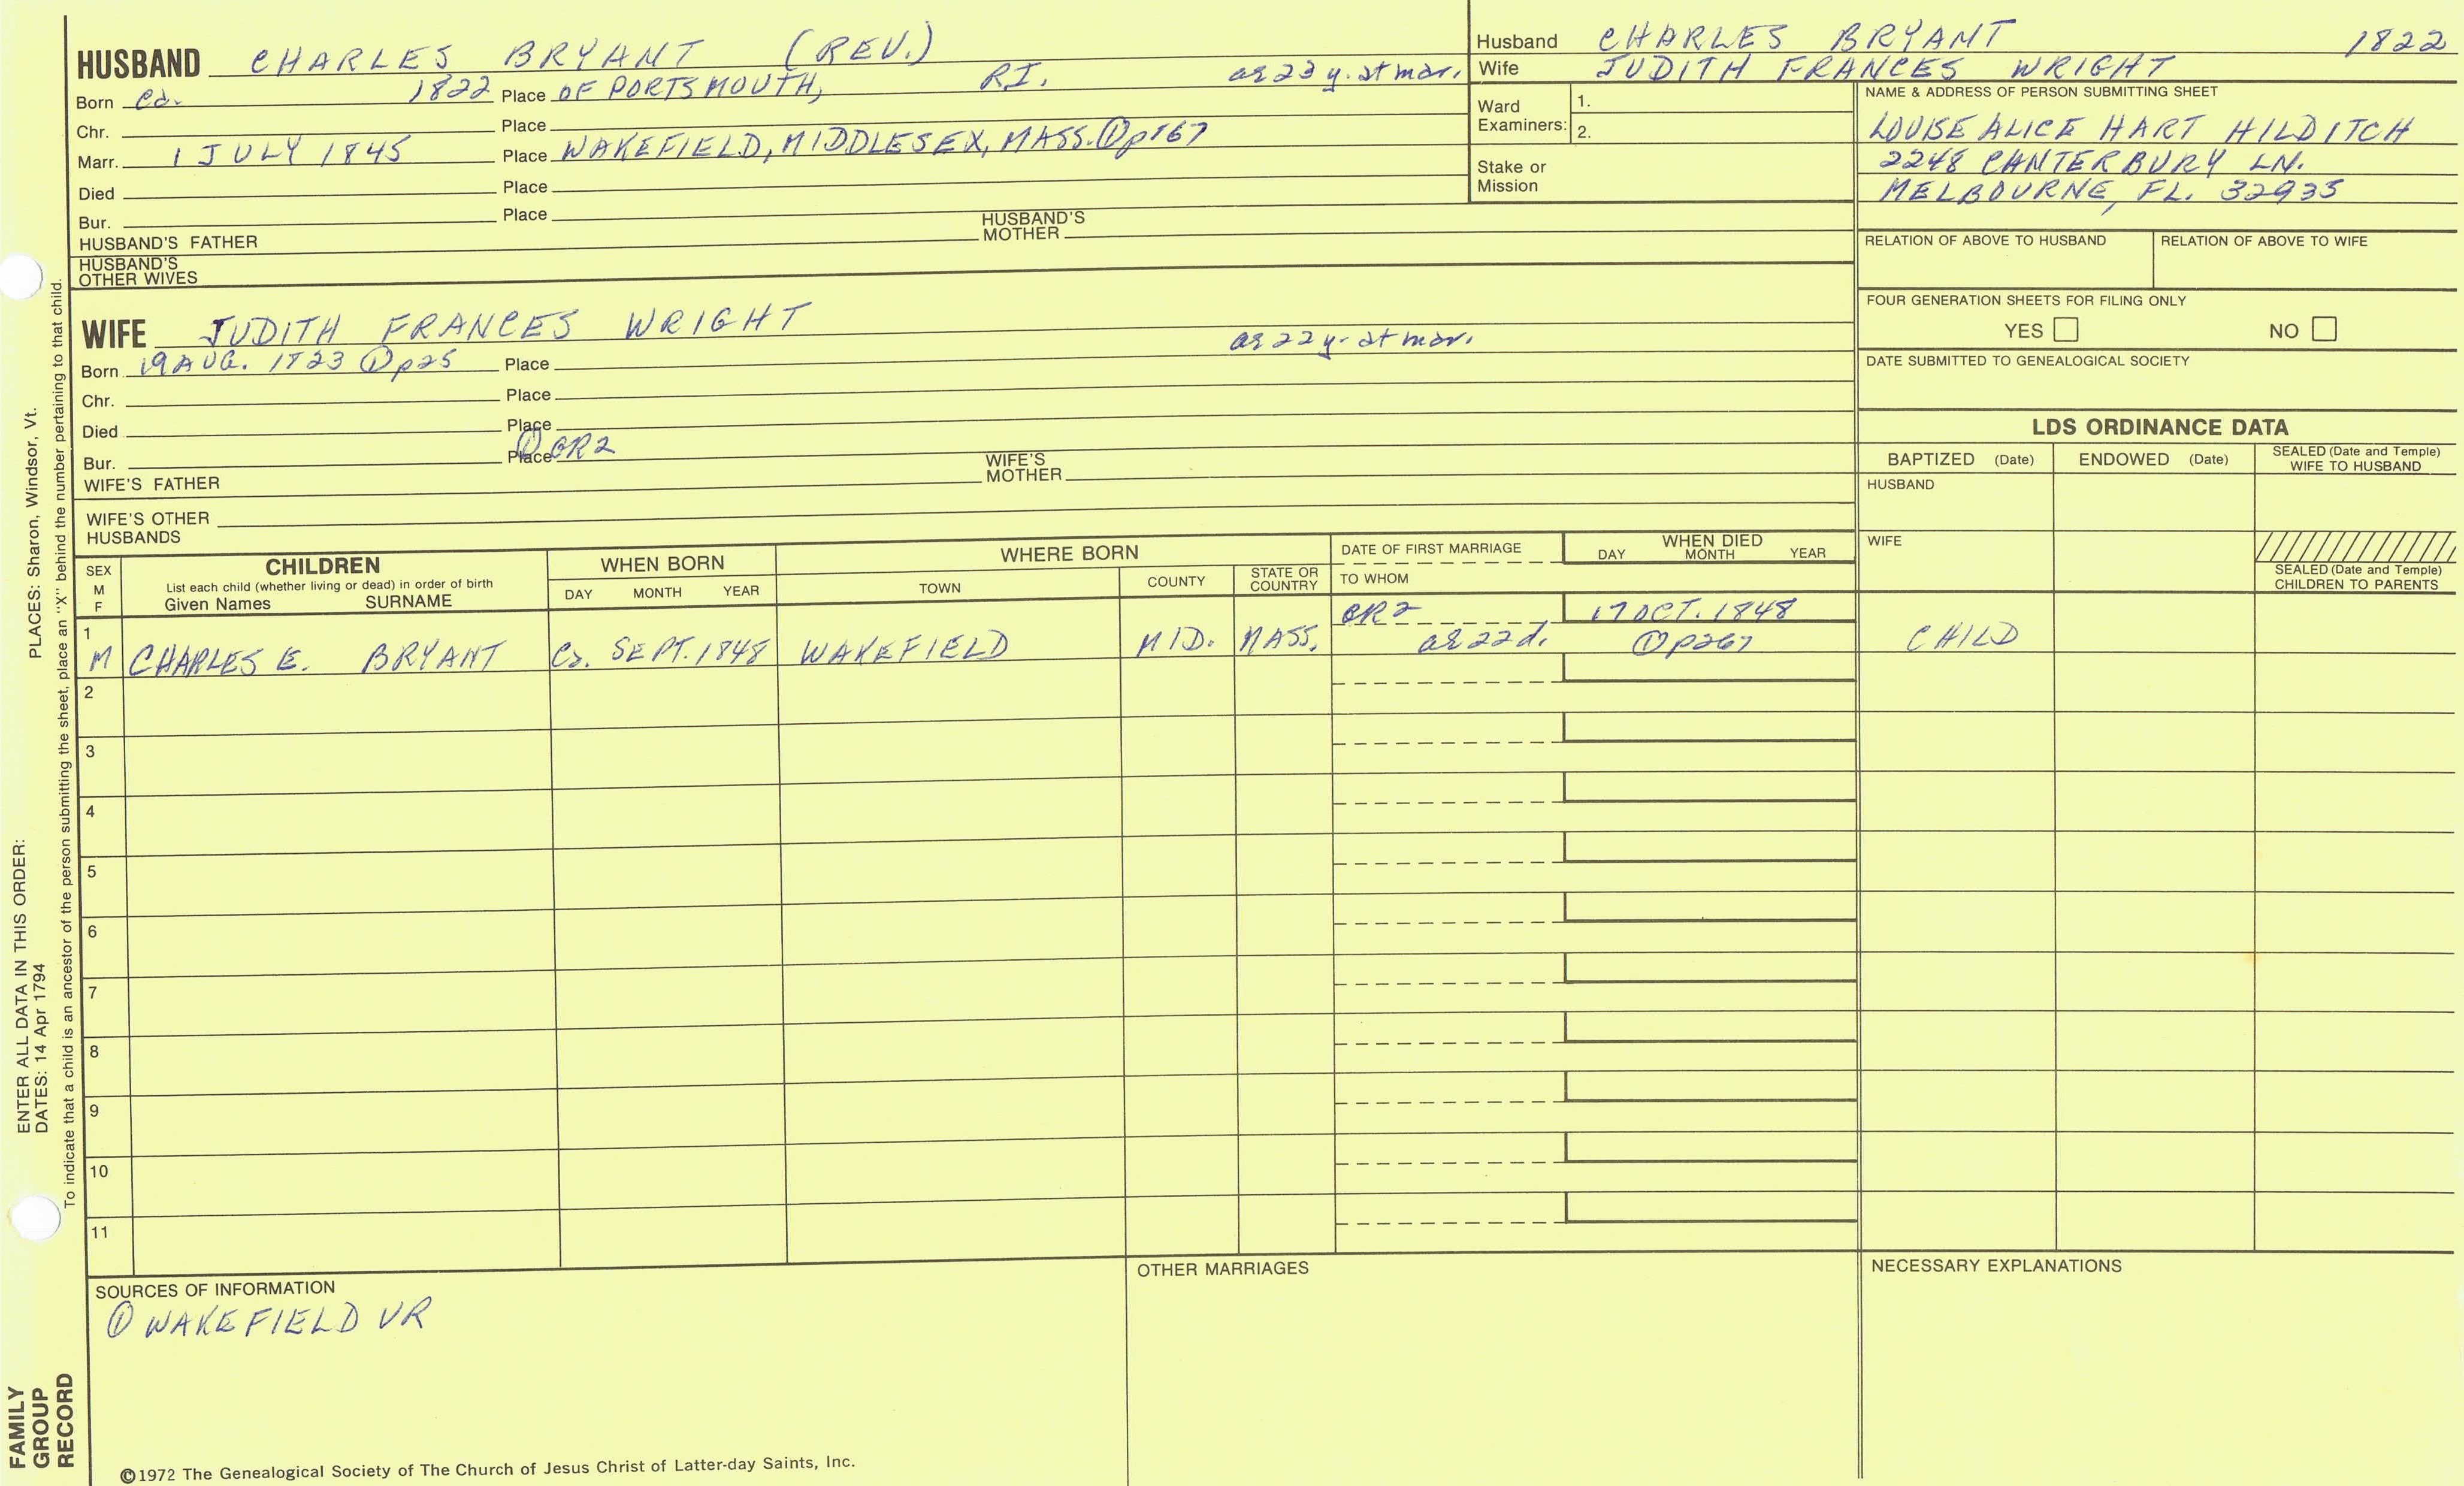 HUSBAND CHARLES BRYANT (REV.)
Born ca. 1822 Place OF PORTSMOUTH, RI. ae 23 y. at mar.
Chr. Place
Marr. 1 JULY 1845 Place WAKEFIELD, MIDDLESEX, MASS. ① p167
Died Place
Bur. Place
HUSBAND'S FATHER HUSBAND'S MOTHER
HUSBAND'S OTHER WIVES
Husband CHARLES BRYANT 1822
Wife JUDITH FRANCES WRIGHT
Ward Examiners: 1.
2.
Stake or Mission
NAME & ADDRESS OF PERSON SUBMITTING SHEET
LOUISE ALICE HART HILDITCH
2248 CANTERBURY LN.
MELBOURNE, FL. 32935
RELATION OF ABOVE TO HUSBAND RELATION OF ABOVE TO WIFE
FOUR GENERATION SHEETS FOR FILING ONLY
YES NO
DATE SUBMITTED TO GENEALOGICAL SOCIETY
WIFE JUDITH FRANCES WRIGHT
ae 22 y. at mar.
Born 19 AUG. 1823 ① p25 Place
Chr. Place
Died Place
① CR2
Bur. Place
WIFE'S FATHER WIFE'S MOTHER
WIFE'S OTHER HUSBANDS
LDS ORDINANCE DATA
BAPTIZED (Date) ENDOWED (Date) SEALED (Date and Temple) WIFE TO HUSBAND
HUSBAND
WIFE
SEALED (Date and Temple) CHILDREN TO PARENTS
SEX M F
CHILDREN
List each child (whether living or dead) in order of birth
Given Names SURNAME
WHEN BORN
DAY MONTH YEAR
WHERE BORN
TOWN COUNTY STATE OR COUNTRY
DATE OF FIRST MARRIAGE
TO WHOM
WHEN DIED
DAY MONTH YEAR
1 CR2 17 OCT. 1848
M CHARLES E. BRYANT Ca. SEPT. 1848 WAKEFIELD MID. MASS. ae 22 d. ① p267 CHILD
2
3
4
5
6
7
8
9
10
11
SOURCES OF INFORMATION
① WAKEFIELD VR
OTHER MARRIAGES
NECESSARY EXPLANATIONS
©1972 The Genealogical Society of The Church of Jesus Christ of Latter-day Saints, Inc.
FAMILY GROUP RECORD
ENTER ALL DATA IN THIS ORDER:
DATES: 14 Apr 1794 PLACES: Sharon, Windsor, Vt.
To indicate that a child is an ancestor of the person submitting the sheet, place an "X" behind the number pertaining to that child.